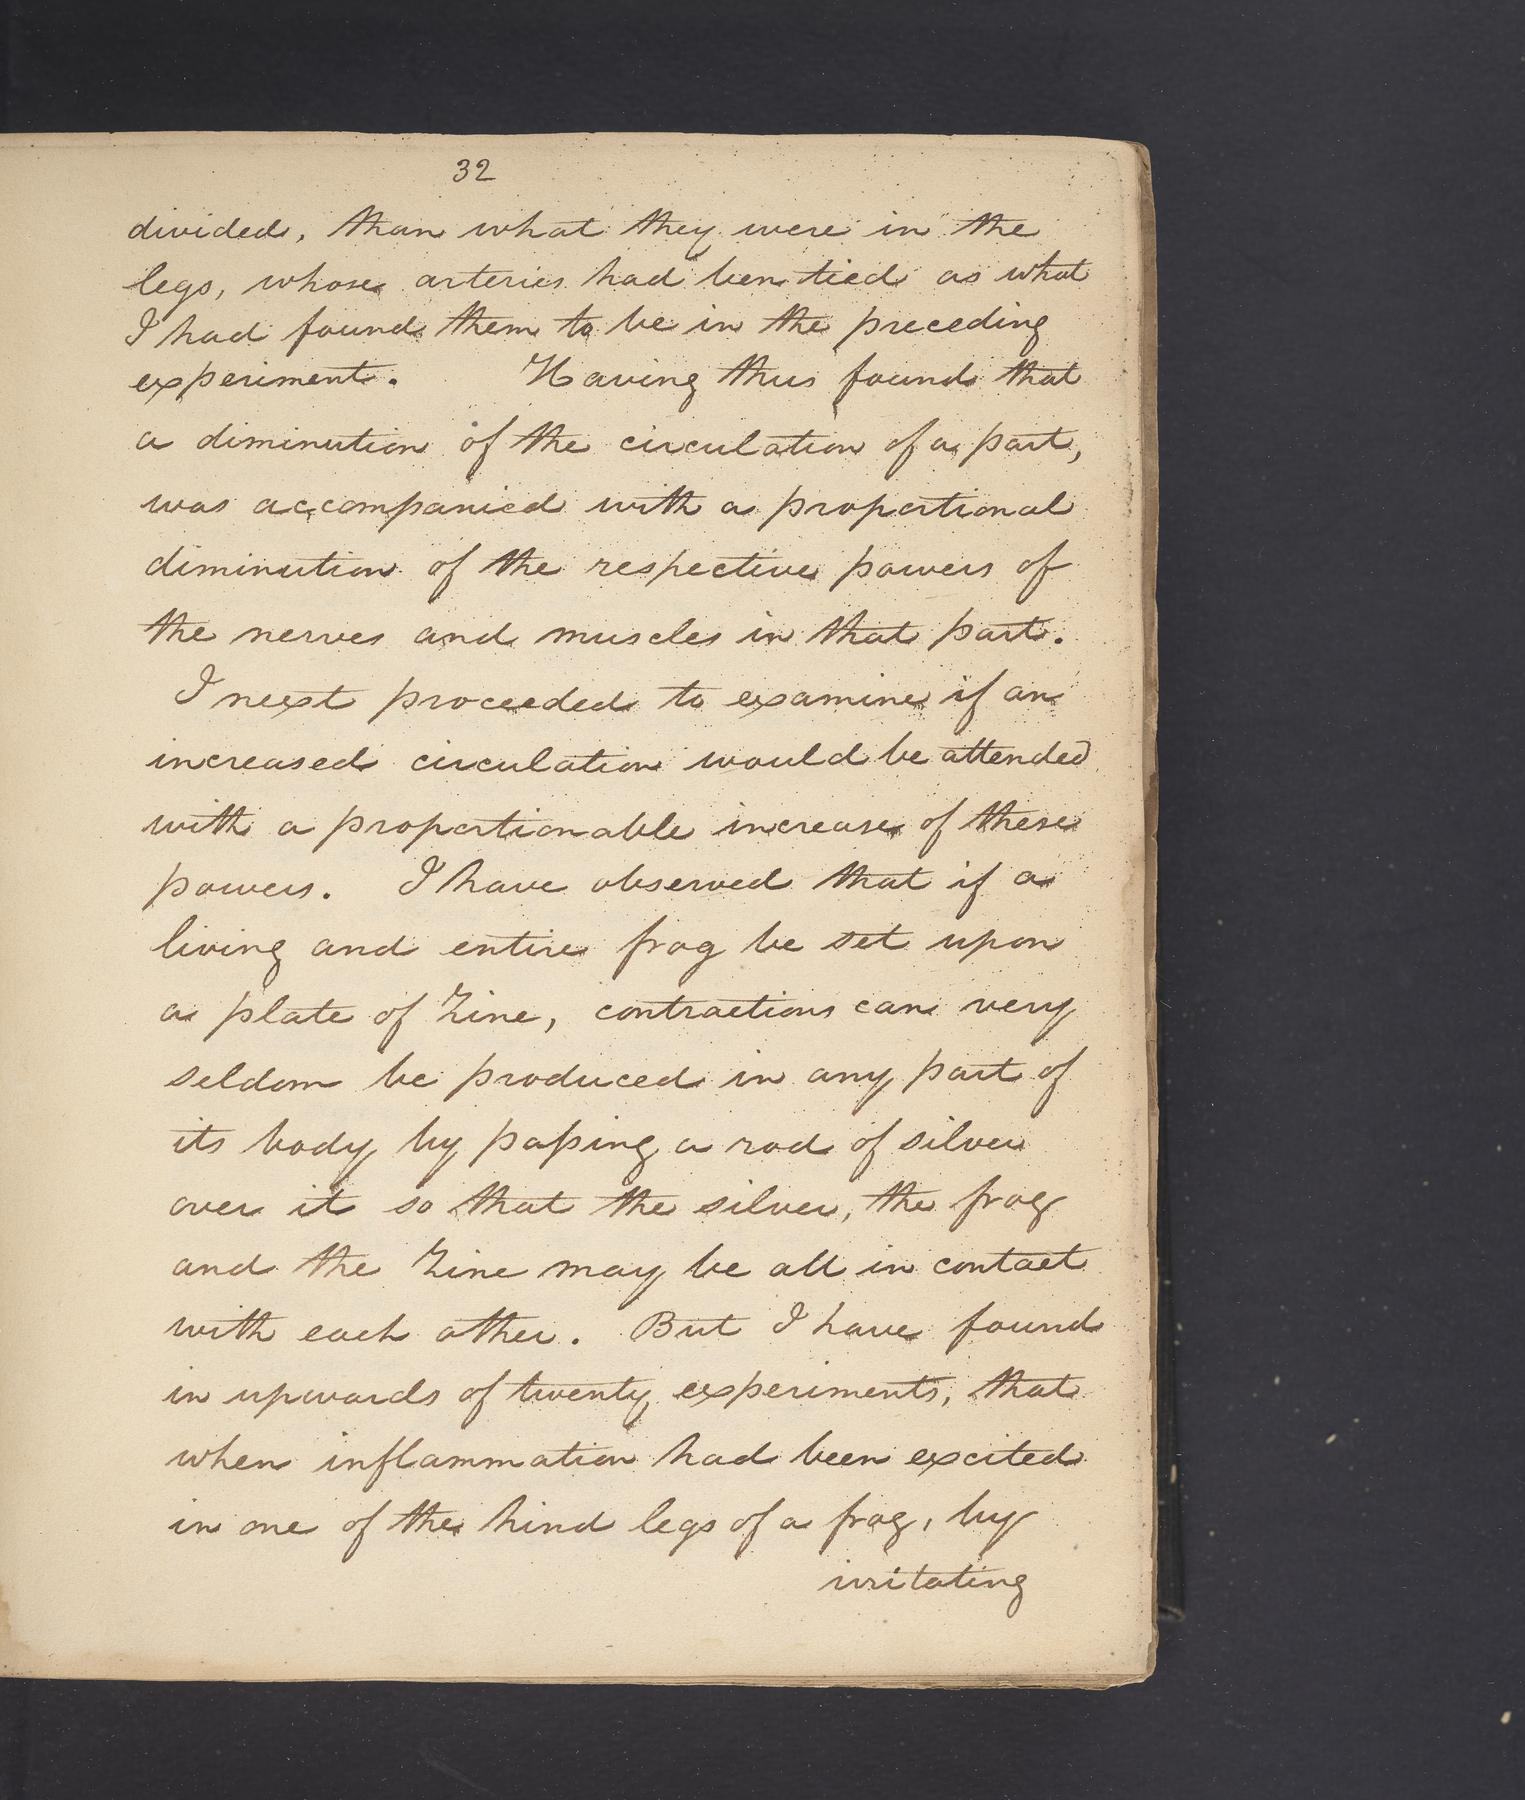 32
divided, than what they were in the
legs, whose arteries had been tied as what
I had found them to be in the preceding
experiment. Having thus found that
a diminution of the circulation of a part,
was accompanied with a proportional
diminution of the respective powers of
the nerves and muscles in that part.
I next proceeded to examine if an
increased circulation would be attended
with a proportionable increase of these
powers. I have observed that if a
living and entire frog be set upon
a plate of Zinc, contractions can very
seldom be produced in any part of
its body by paſsing a rod of silver
over it so that the silver, the frog
and the Zinc may be all in contact
with each other. But I have found
in upwards of twenty experiments, that
when inflammation had been excited
in one of the hind legs of a frog, by
irritating